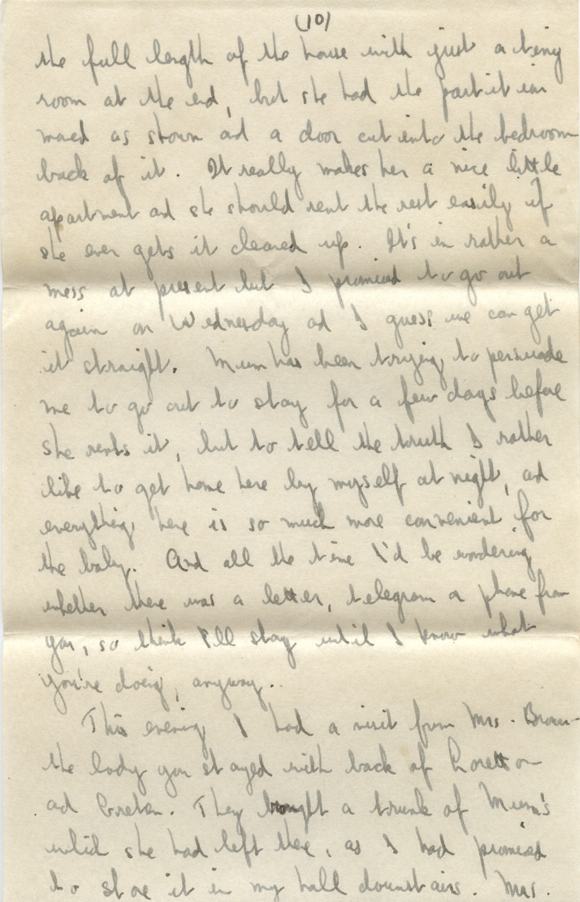 (10)
the full length of the house with just a tiny
room at the end, but she had the partition
moved as shown and a door cut into the bedroom
back of it. It really makes her a nice little
apartment and she should rent the rest easily if
she ever gets it cleared up. It's in rather a
mess at present but I promised to go out
again on Wednesday and I guess we can get
it straight. Mum has been trying to persuade
me to go out to stay for a few days before
she rents it, but to tell the truth I rather
like to get home here by myself at night, and
everything here is so much more convenient for
the baby. And all the time I'd be wondering
whether there was a letter, telegram or phone from
you, so think I'll stay until I know what
you're doing, anyway.
This evening I had a visit from Mrs. Brown -
the lady you stayed with back of Loretto
and Greta. They brought a trunk of Mum's
which she had left there, as I had promised
to store it in my hall downstairs. Mrs.